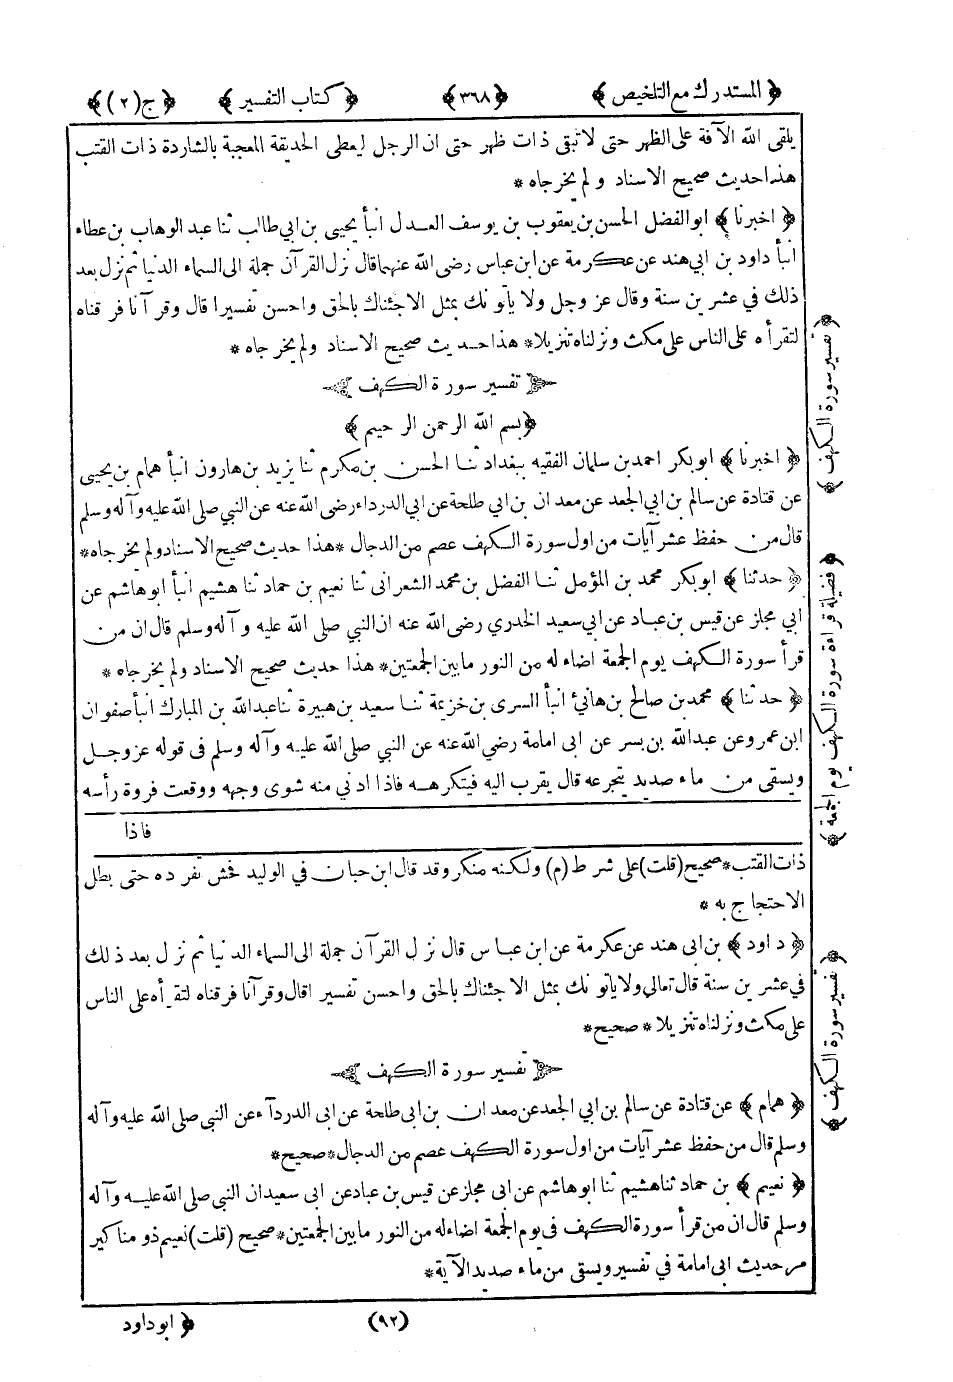 ﴿ المستدرك مع التلخيص ﴾ ﴿٣٦٨﴾ ﴿ كتاب التفسير ﴾ ﴿ ج (٢) ﴾
يلقى الله الآفة على الظهر حتى لا تبقى ذات ظهر حتى ان الرجل ليعطى الحديقة المعجبة بالشاردة ذات القتب
هذا حديث صحيح الاسناد ولم يخرجاه *
﴿ اخبرنا ﴾ ابو الفضل الحسن بن يعقوب بن يوسف العدل انبأ يحيى بن ابي طالب ثنا عبد الوهاب بن عطاء
انبأ داود بن ابي هند عن عكرمة عن ابن عباس رضى الله عنهما قال نزل القرآن جملة الى السماء الدنيا ثم نزل بعد
ذلك في عشرين سنة وقال عز وجل ولا يأتونك بمثل الا جئناك بالحق واحسن تفسيرا قال وقرآنا فرقناه
لتقرأه على الناس على مكث ونزلناه تنزيلا * هذا حديث صحيح الاسناد ولم يخرجاه *
تفسير سورة الكهف
﴿ بسم الله الرحمن الرحيم ﴾
﴿ اخبرنا ﴾ ابو بكر احمد بن سلمان الفقيه ببغداد ثنا الحسن بن مكرم ثنا يزيد بن هارون انبأ همام بن يحيى
عن قتادة عن سالم بن ابي الجعد عن معدان بن ابي طلحة عن ابي الدرداء رضى الله عنه عن النبي صلى الله عليه وآله وسلم
قال من حفظ عشر آيات من اول سورة الكهف عصم من الدجال * هذا حديث صحيح الاسناد ولم يخرجاه *
﴿ حدثنا ﴾ ابو بكر محمد بن المؤمل ثنا الفضل بن محمد الشعرانى ثنا نعيم بن حماد ثنا هشيم انبأ ابو هاشم عن
ابي مجلز عن قيس بن عباد عن ابي سعيد الخدري رضى الله عنه ان النبي صلى الله عليه وآله وسلم قال ان من
قرأ سورة الكهف يوم الجمعة اضاء له من النور ما بين الجمعتين * هذا حديث صحيح الاسناد ولم يخرجاه *
﴿ حدثنا ﴾ محمد بن صالح بن هانئ انبأ السرى بن خزيمة ثنا سعيد بن هبيرة ثنا عبد الله بن المبارك انبأ صفوان
ابن عمرو عن عبد الله بن بسر عن ابى امامة رضي الله عنه عن النبي صلى الله عليه وآله وسلم فى قوله عز وجل
ويسقى من ماء صديد يتجرعه قال يقرب اليه فيتكرهه فاذا ادني منه شوى وجهه ووقعت فروة رأسه
فاذا
ذات القتب * صحيح (قلت) على شرط (م) ولكنه منكر وقد قال ابن حبان في الوليد فحش تفرده حتى بطل
الاحتجاج به *
﴿ داود ﴾ بن ابى هند عن عكرمة عن ابن عباس قال نزل القرآن جملة الى السماء الدنيا ثم نزل بعد ذلك
في عشرين سنة قال تعالى ولا يأتونك بمثل الا جئناك بالحق واحسن تفسيرا قال وقرآنا فرقناه لتقرأه على الناس
على مكث ونزلناه تنزيلا * صحيح *
تفسير سورة الكهف
﴿ همام ﴾ عن قتادة عن سالم بن ابي الجعد عن معدان بن ابى طلحة عن ابى الدرداء عن النبي صلى الله عليه وآله
وسلم قال من حفظ عشر آيات من اول سورة الكهف عصم من الدجال * صحيح *
﴿ نعيم ﴾ بن حماد ثنا هشيم ثنا ابو هاشم عن ابى مجلز عن قيس بن عباد عن ابى سعيد ان النبي صلى الله عليه وآله
وسلم قال ان من قرأ سورة الكهف فى يوم الجمعة اضاء له من النور ما بين الجمعتين * صحيح (قلت) نعيم ذو مناكير
مر حديث ابى امامة في تفسير ويسقى من ماء صديد الآية *
(٩٢)
﴿ ابو داود
﴿ تفسير سورة الكهف ﴾
﴿ فضيلة قراءة سورة الكهف يوم الجمعة ﴾
﴿ تفسير سورة الكهف ﴾